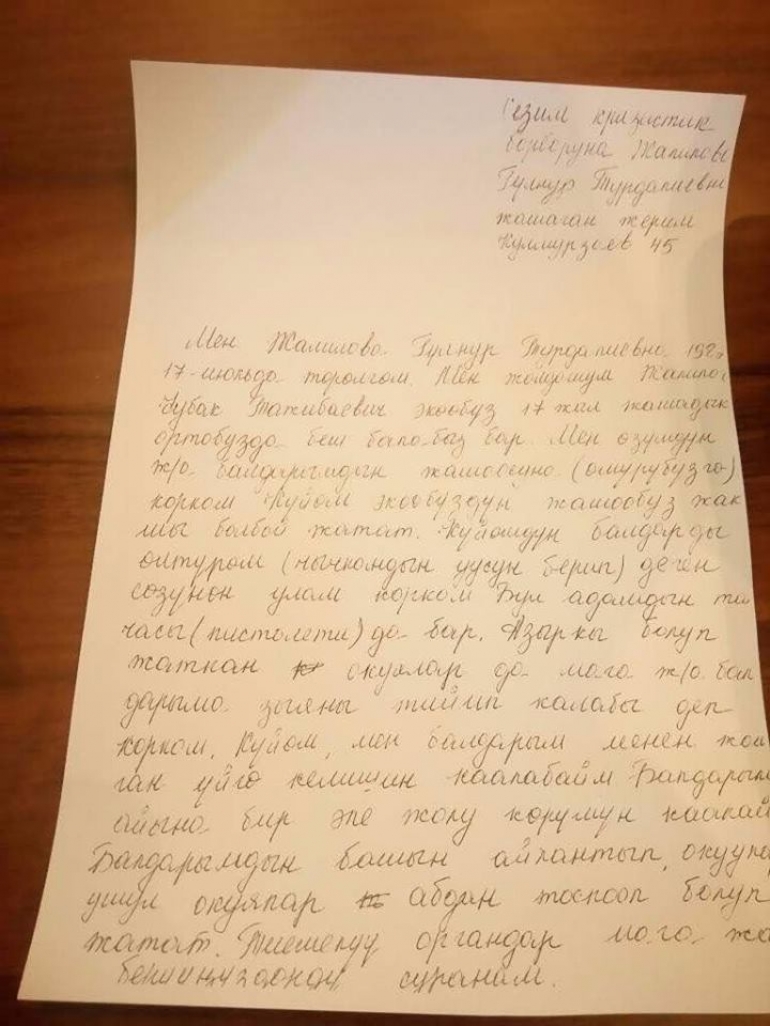 Сезим кризистик
борборуна Жалилова
Гулнур Турдалиевна
жашаган жерим
Кулмурзаев 45
Мен Жалилова Гулнур Турдалиевна 198
17-июльда торолгом. Мен жолдошум Жалило
Чубак Тажибаевич экообуз 17 жыл жашадык
ортобузда беш бала-баз бар. Мен озумдун
ж/а балдарымдын жашоосуна (омурубузго)
корком Куйом экообуздун жашообуз жак
шы болбой жатат. Куйомдун балдарды
олтуром (чычкандын уусун берип) деген
созунон улам корком Бул адамдын
часы (пистолети) да бар. Азыркы болуп
жаткан окуялар да мага ж/а бал
дарыма зыяны тийип калабы деп
корком. Куйом, мен балдарым менен жаша
ган уйго келишин каалабайм Балдарым
айына бир эле жолу корушун каалай
Балдарымдын башын айлантып, окууга
ушул окуялар абдан тоспоол болуп
жатат. Тиешелуу органдар мага жа
суранам.